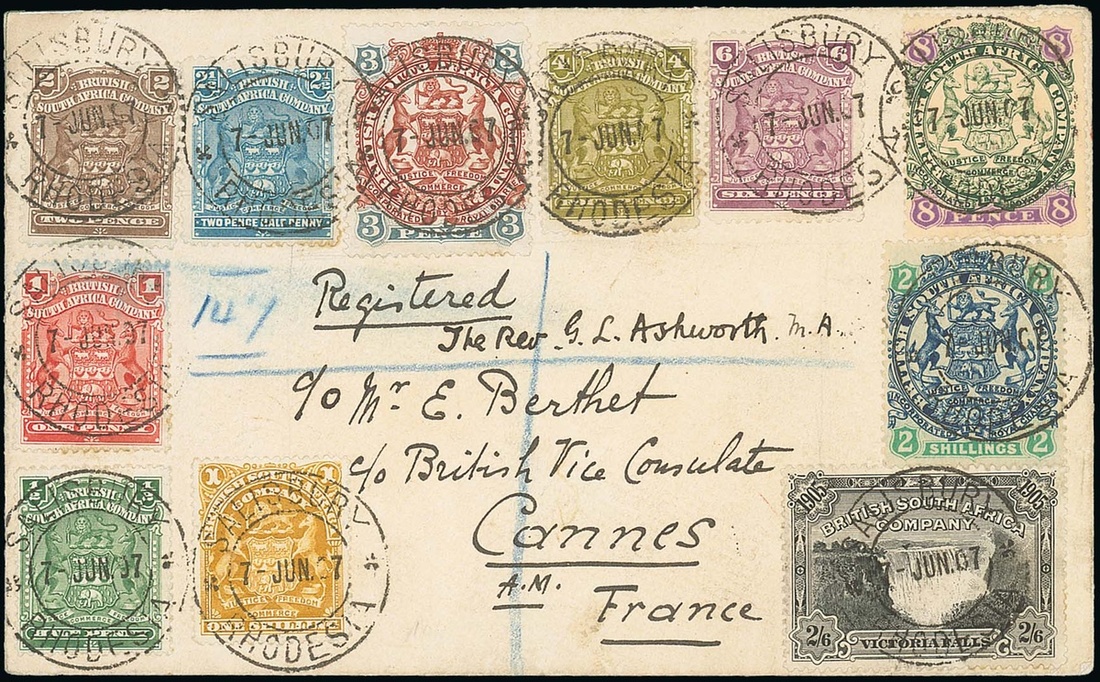 2 2
BRITISH
SOUTH AFRICA COMPANY
TWO PENCE
SALISBURY
7-JUN.07
RHODESIA
2½ 2½
BRITISH
SOUTH AFRICA COMPANY
TWO PENCE HALF PENNY
7-JUN.07
3 3
BRITISH SOUTH AFRICA COMPANY
JUSTICE FREEDOM
COMMERCE
3 PENCE 3
7-JUN.07
RHODESIA
4 4
BRITISH
SOUTH AFRICA COMPANY
7-JUN.07
RHODESIA
6 6
BRITISH
SOUTH AFRICA COMPANY
SIX PENCE
SALISBURY
7-JUN.07
RHODESIA
8 8
BRITISH SOUTH AFRICA COMPANY
JUSTICE FREEDOM
COMMERCE
8 PENCE 8
7-JUN.07
1 1
BRITISH
SOUTH AFRICA COMPANY
ONE PENNY
SALISBURY
7-JUN.07
RHODESIA
147
Registered
The Rev. G. L. Ashworth. M.A.
c/o Mr E. Berthet
c/o British Vice Consulate
Cannes
A.M.
France
2 2
BRITISH SOUTH AFRICA COMPANY
JUSTICE FREEDOM
COMMERCE
2 SHILLINGS 2
½ ½
BRITISH
SOUTH AFRICA COMPANY
JUSTICE FREEDOM
COMMERCE
HALF PENNY
SALISBURY
7-JUN.07
RHODESIA
1 1
COMPANY
JUSTICE FREEDOM
COMMERCE
SALISBURY
7-JUN.07
RHODESIA
1905 1905
BRITISH SOUTH AFRICA
COMPANY.
SALISBURY
7-JUN.07
2/6 VICTORIA FALLS 2/6